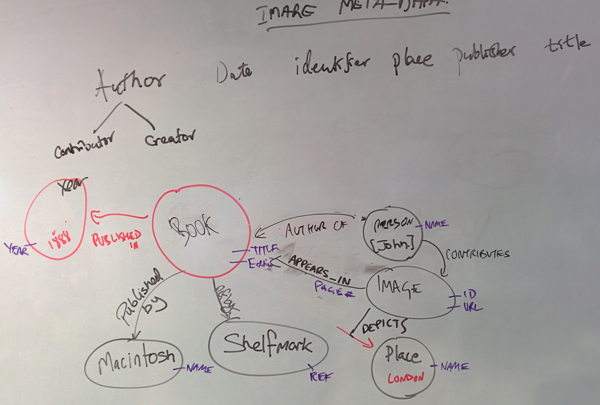 IMAGE META-DATA
Author Date identifier place publisher title
Contributor Creator
Year
1888
YEAR
PUBLISHED IN
BOOK
TITLE
AUTHOR OF
PERSON
[John]
NAME
CONTRIBUTES
APPEARS_IN
PAGE#
IMAGE
ID
URL
DEPICTS
Place
LONDON
NAME
Published by
Macintosh
NAME
Shelfmark
REF